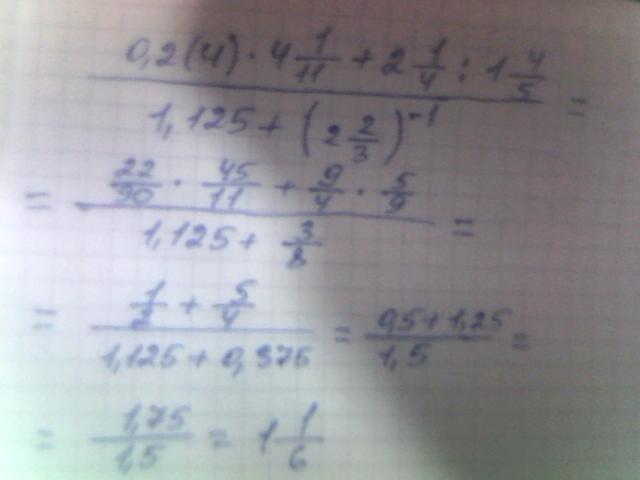 (0,2(4) · 4 1/11 + 2 1/4 : 1 4/5) / (1,125 + (2 2/3)^-1) =
= (22/90 · 45/11 + 9/4 · 5/9) / (1,125 + 3/8) =
= (1/2 + 5/4) / (1,125 + 0,375) = (0,5 + 1,25) / 1,5 =
= 1,75 / 1,5 = 1 1/6